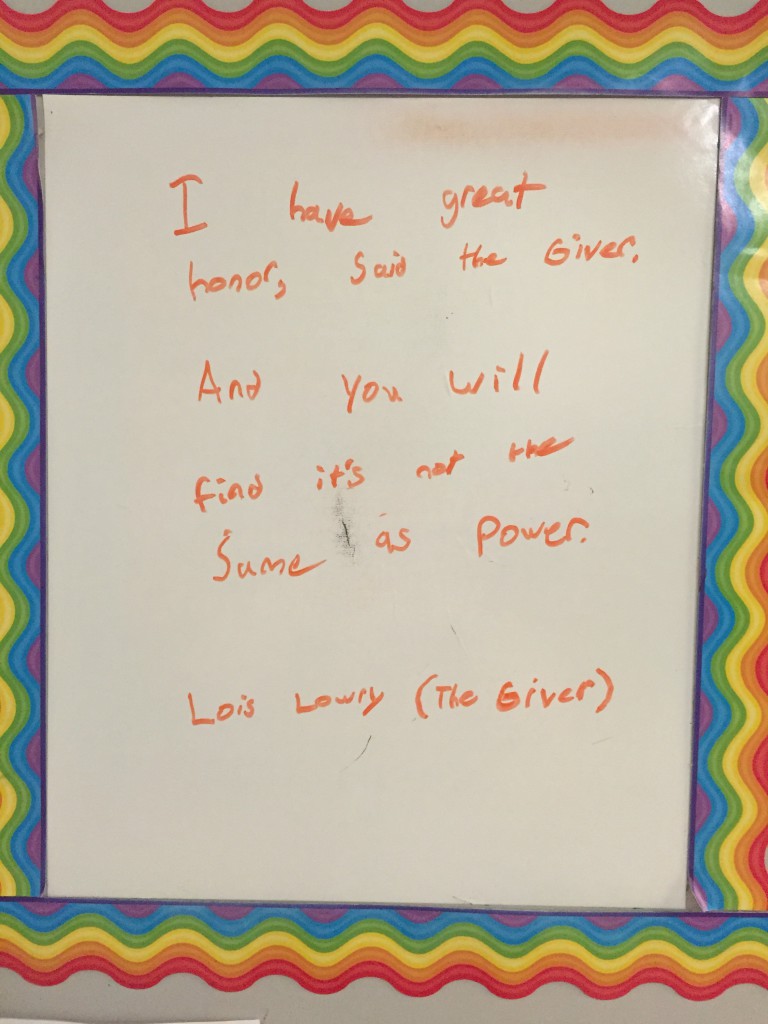 I have great
honor, Said the Giver.
And you will
find it's not the
Same as Power.
Lois Lowry (The Giver)